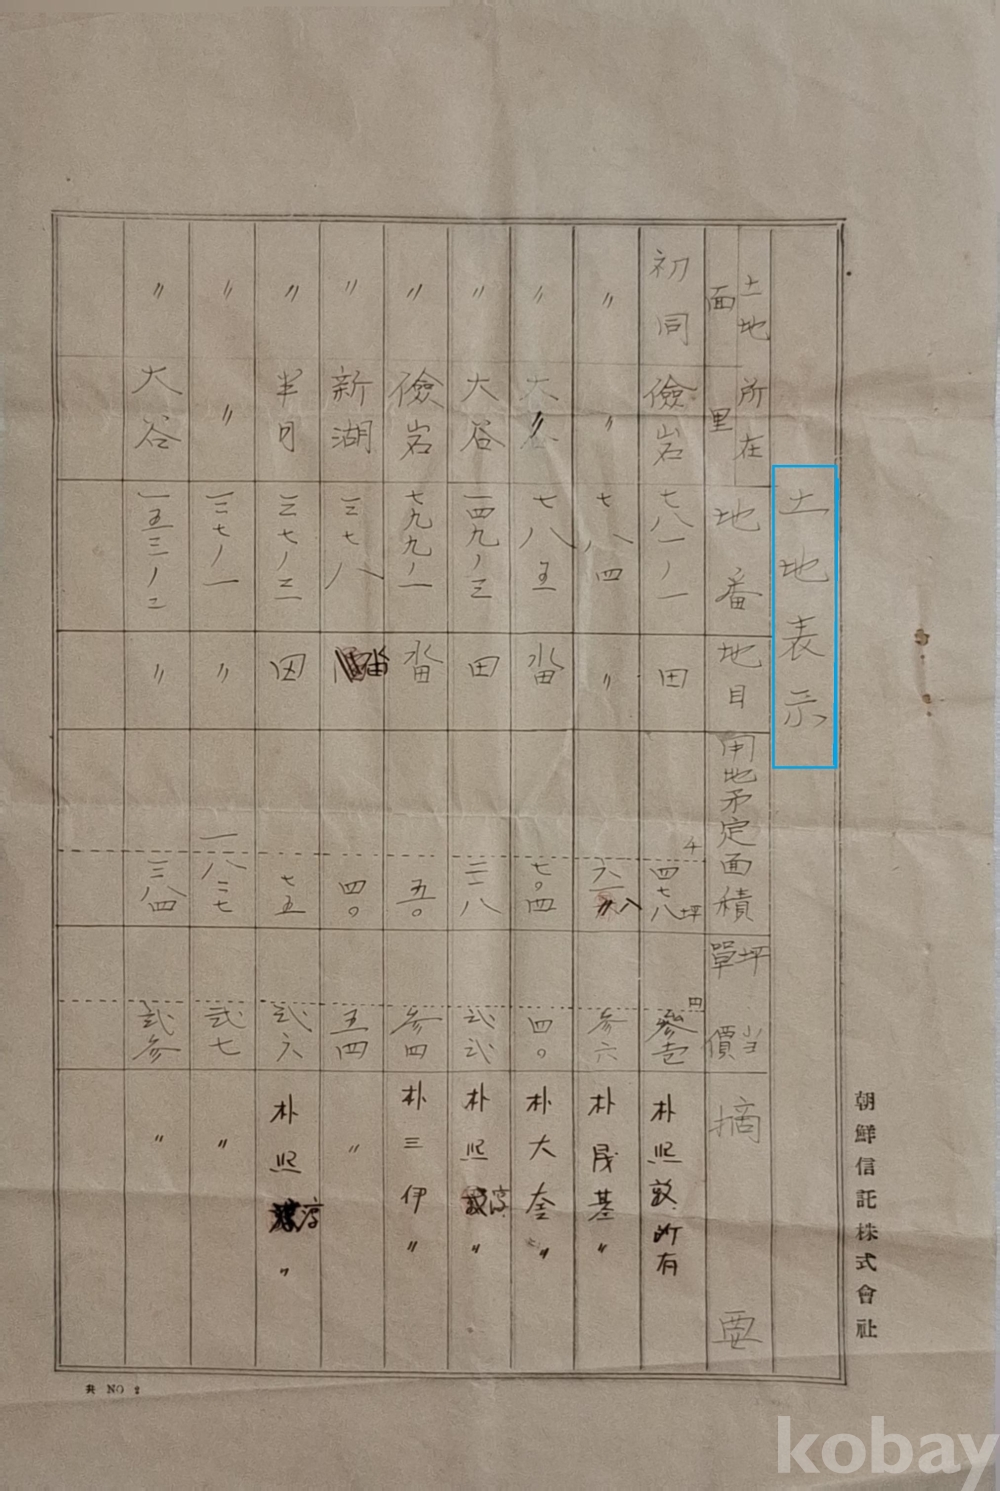 土地表示
土地所在
面 里 地番 地目 用地予定面積 坪当單價 摘要
初同 儉岩 七八一ノ一 田 四七八坪 參壱円 朴熙敦所有
〃 〃 七八四 〃 六一八 参六 朴晟基〃
〃 〃 七八五 畓 七〇四 四〇 朴大奎〃
〃 大谷 一四九ノ三 田 三一八 弐弐 朴熙淳〃
〃 儉岩 七九九ノ一 畓 五〇 参四 朴三伊〃
〃 新湖 三七八 畓 四〇 五四 〃
〃 半月 三七ノ三 田 七五 弐六 朴熙淳〃
〃 〃 三七ノ一 〃 一八三七 弐七 〃
〃 大谷 一五三ノ二 〃 三八四 弐参 〃
朝鮮信託株式會社
共 NO 2
kobay